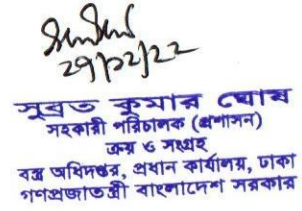 29/12/22
সুব্রত কুমার ঘোষ
সহকারী পরিচালক (প্রশাসন)
ক্রয় ও সংগ্রহ
বস্ত্র অধিদপ্তর, প্রধান কার্যালয়, ঢাকা
গণপ্রজাতন্ত্রী বাংলাদেশ সরকার